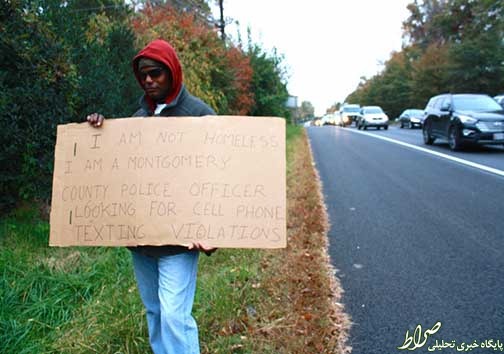 I AM NOT HOMELESS
I AM A MONTGOMERY
COUNTY POLICE OFFICER
LOOKING FOR CELL PHONE
TEXTING VIOLATIONS
صراط
پایگاه خبری تحلیلی